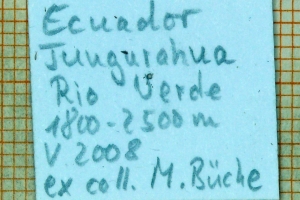 Ecuador
Tungurahua
Rio Verde
1800-2500m
V 2008
ex coll. M. Büche